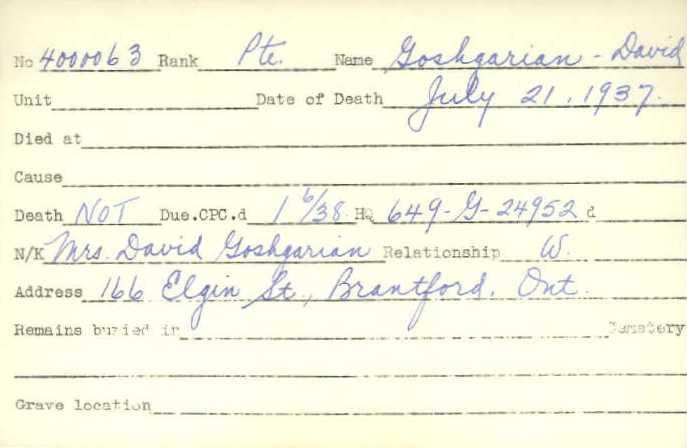 No 4000063 Rank Pte. Name Goshgarian - David
Unit Date of Death July 21, 1937.
Died at
Cause
Death NOT Due.CPC.d 1 6/38 HQ 649-G-24952 d
N/K Mrs. David Goshgarian Relationship W.
Address 166 Elgin St., Brantford. Ont.
Remains buried in Cemetery
Grave location